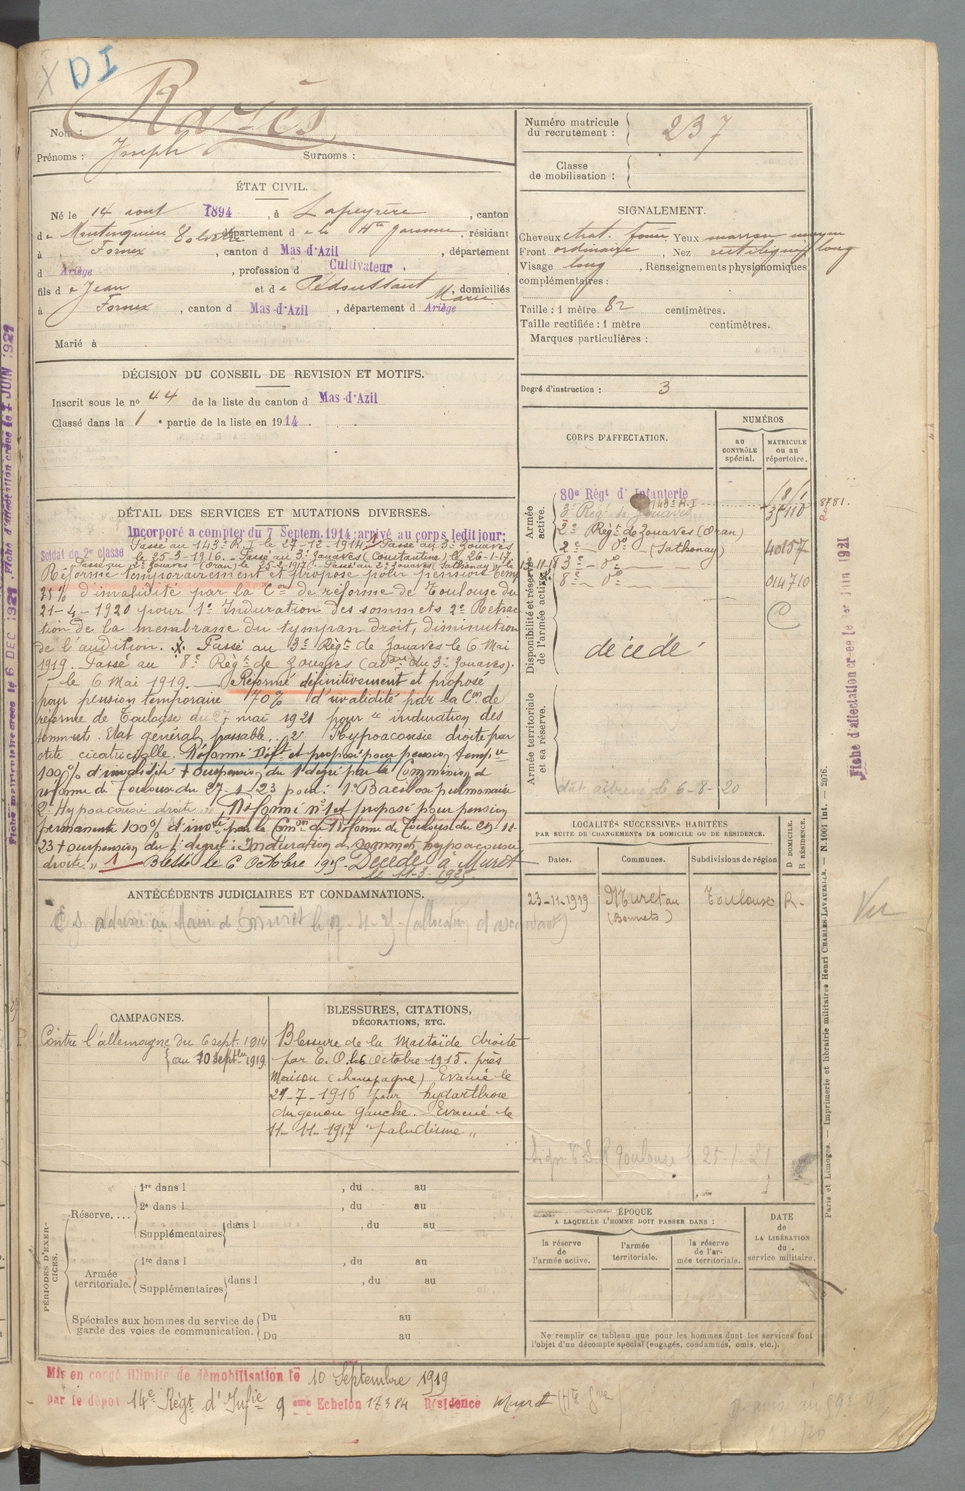 X DI
Razès
Nom :
Prénoms : Joseph Surnoms :
Numéro matricule du recrutement : 237
Classe de mobilisation :
ÉTAT CIVIL.
Né le 14 aout 1894, à Lapeyrère, canton
de Montesquieu Volvestre département de la Hte Garonne, résidant
à Fornex, canton d Mas-d'Azil, département
d Ariège, profession d Cultivateur.
fils de Jean et de Pédoussaut Marie, domiciliés
à Fornex, canton d Mas-d'Azil, département d Ariège
Marié à
SIGNALEMENT.
Cheveux chat. Yeux marron moyen
Front ordinaire, Nez rectiligne long
Visage long, Renseignements physionomiques
complémentaires :
Taille : 1 mètre 82 centimètres.
Taille rectifiée : 1 mètre centimètres.
Marques particulières :
Degré d'instruction : 3
DÉCISION DU CONSEIL DE REVISION ET MOTIFS.
Inscrit sous le no 44 de la liste du canton d Mas-d'Azil
Classé dans la 1 e partie de la liste en 1914.
DÉTAIL DES SERVICES ET MUTATIONS DIVERSES.
Incorporé a compter du 7 Septem. 1914 arrivé au corps ledit jour;
Soldat de 2e classe Passé au 143e R.I. le 27-12-1914. Passé au 3e Zouaves
le 25-3-1916. Passé au 3e Zouaves (Constantine) le 26-1-17.
Passé au 2e Zouaves (Oran) le 25-2-1917. Passé au 2e Zouaves Sathonay le
Réformé temporairement et proposé pour pension temp
25% d'invalidité par la Con de réforme de Toulouse du
21-4-1920 pour 1o Induration des sommets 2o Rétrac
tion de la membrane du tympan droit, diminution
de l'audition. Passé au 3e Régt de Zouaves le 6 Mai
1919. Passé au 8e Régt de Zouaves (au 3e Zouaves).
le 6 Mai 1919. Réformé définitivement et proposé
pour pension temporaire 70% d'invalidité par la Con de
réforme de Toulouse du mai 1921 pour induration des
sommets. Etat général passable. 2o Hypoacousie droite par
otite cicatricielle. Réformé Déft et proposé pour pension temp
100% d'invalidité + suspension du 1 degré par la Commission de
réforme de Toulouse du 27-1-23 pour : 1o Bacillose pulmonaire
2o Hypoacousie droite. Réformé no 1 et proposé pour pension
permanente 100% d'invté par la Comon de Réforme de Toulouse du
23 + suspension du 1 degré : Induration des sommets hypoacousie
droite. Blessé le 6 Octobre 1915. Décédé à Muret
le 11-3-1925
CORPS D'AFFECTATION.
NUMÉROS
au CONTRÔLE spécial.
MATRICULE OU AU répertoire.
Armée active.
80e Régt d'Infanterie
143e R.I. 8781
3e Régt de Zouaves
2e Régt de Zouaves (Oran)
2e - do - (Sathonay) 40157
3e - do -
8e - do - 014710
Disponibilité et réserve de l'armée active.
décédé
Armée territoriale et sa réserve.
le 6-8-20
LOCALITÉS SUCCESSIVES HABITÉES
PAR SUITE DE CHANGEMENTS DE DOMICILE OU DE RÉSIDENCE.
Dates. Communes. Subdivisions de région D DOMICILE. R RÉSIDENCE.
23-11-1919 Muret au (Bonnets) Toulouse R.
Vu
ANTÉCÉDENTS JUDICIAIRES ET CONDAMNATIONS.
CAMPAGNES.
Contre l'allemagne du 6 sept. 1914
au 10 septbre 1919
BLESSURES, CITATIONS,
DÉCORATIONS, ETC.
Blessure de la Mastoïde droite
par E.O. le 6 octobre 1915. près
Maison (champagne) Evacué le
29-7-1916 pour hydarthrose
du genou gauche. Evacué le
11-11-1917 "paludisme"
PÉRIODES D'EXERCICES.
Réserve....
1re dans l , du au
2e dans l , du au
Supplémentaires dans l , du au
Armée territoriale.
1re dans l , du au
Supplémentaires dans l , du au
Spéciales aux hommes du service de garde des voies de communication. Du au
Du au
ÉPOQUE
A LAQUELLE L'HOMME DOIT PASSER DANS :
la réserve de l'armée active.
l'armée territoriale.
la réserve de l'armée territoriale.
DATE de LA LIBÉRATION du service militaire.
Ne remplir ce tableau que pour les hommes dont les services font
l'objet d'un décompte spécial (engagés, condamnés, omis, etc.).
Mis en congé illimité de démobilisation le 10 Septembre 1919
par le dépot 14e Régt d'Infie 9 eme Echelon 17384 Résidence Muret (Hte Gne)
Fiche d'affectation créée le 1er Juin 1921
Paris et Limoges. — Imprimerie et librairie militaires Henri CHARLES-LAVAUZELLE. — N. 1001 int. — 2976.